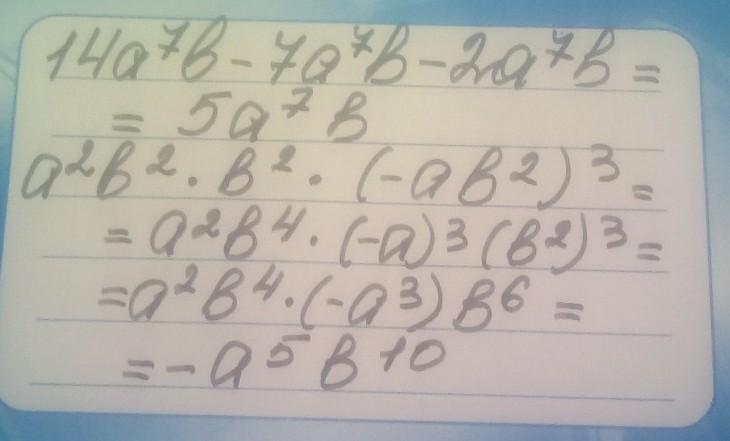 14a⁷b - 7a⁷b - 2a⁷b =
= 5a⁷b
a²b² · b² · (-ab²)³ =
= a²b⁴ · (-a)³(b²)³ =
= a²b⁴ · (-a³)b⁶ =
= -a⁵b¹⁰